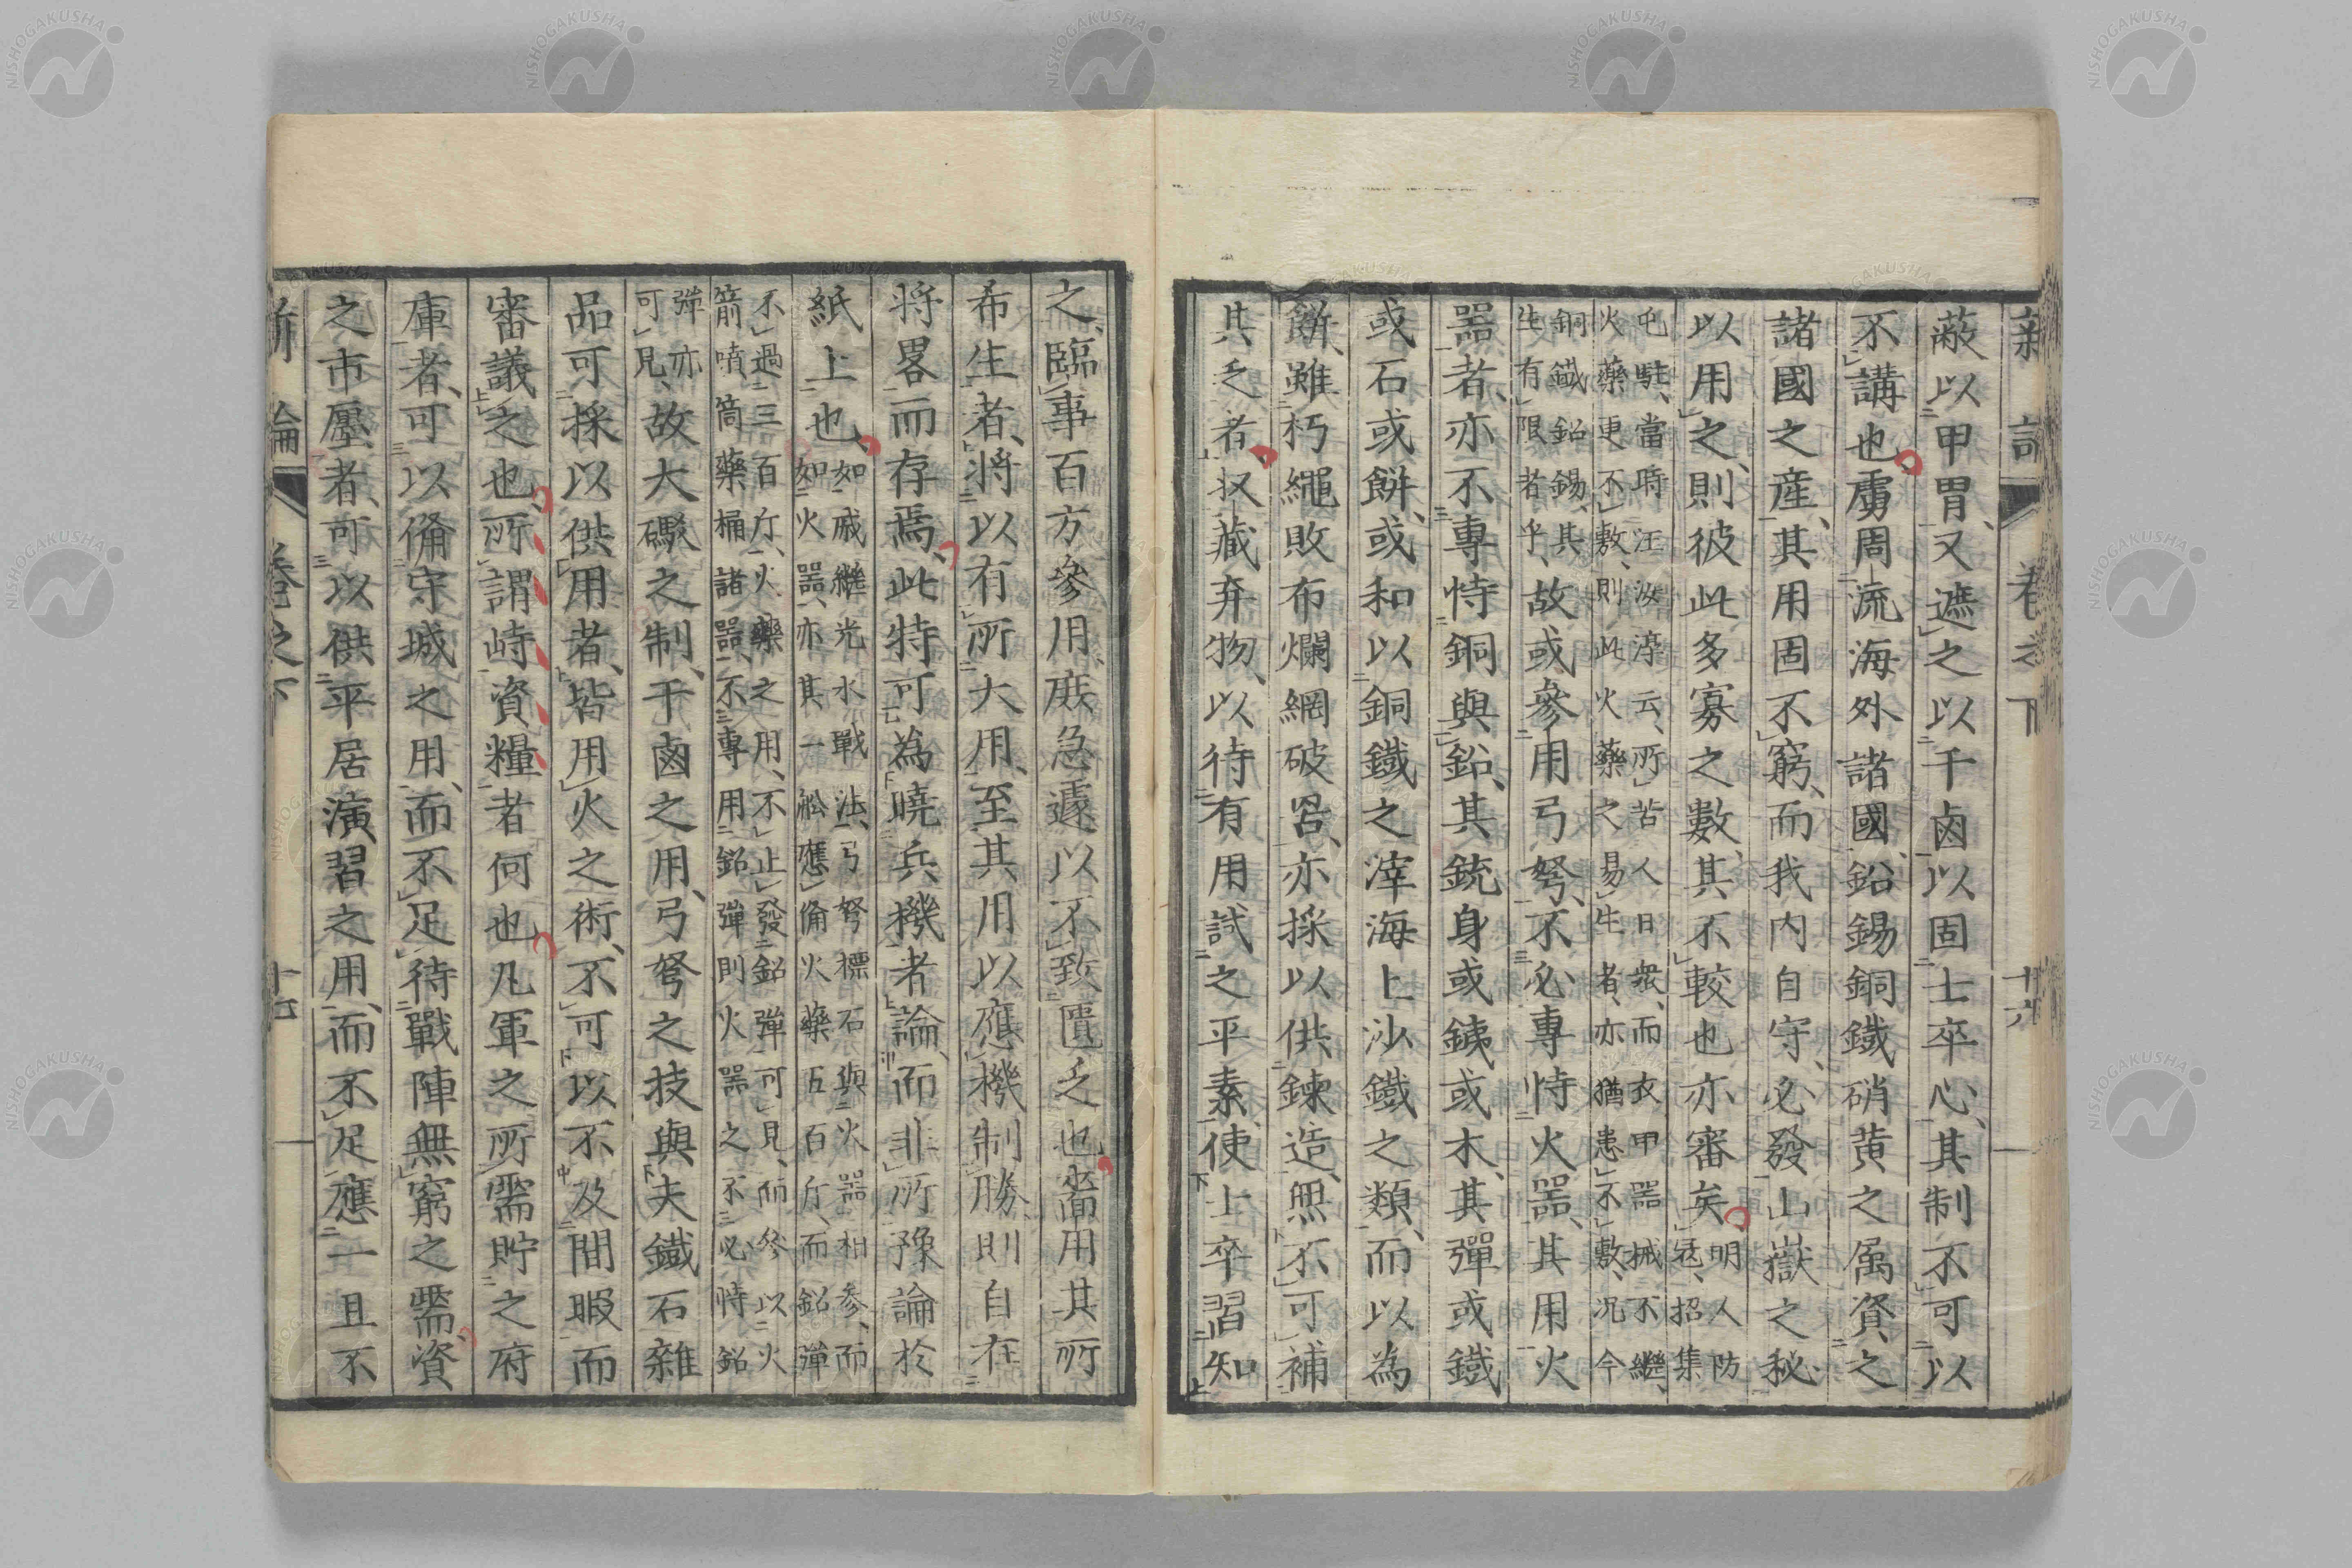 蔽以甲冑、又遮之以干鹵、以固士卒心、其制不可以
不講也。虜周流海外諸國、鉛錫銅鐵硝黃之属資之
諸國之産、其用固不窮、而我内自守、必發山嶽之秘
以用之、則彼此多寡之數、其不較也亦審矣。
明人防
冦、招集
屯駐、當時汪汝淳云、所苦人日衆、而衣甲噐械不繼、
火藥更不敷、則此火藥之易生者、亦猶患不敷、况今
銅鐵鉛錫、其
生有限者乎、
故或參用弓弩、不必專恃火噐、其用火
噐者、亦不專恃銅與鉛、其銃身或銕或木、其彈或鐵
或石或餅、或和以銅鐵之滓海上沙鐵之類、而以為
餅、雖朽繩敗布爛網破罟、亦採以供鍊造、無不可補
其乏者、収藏弃物、以待有用、試之平素、使士卒習知
之、臨事百方參用、庶急遽以不致匱乏也、嗇用其所
希生者、將以有所大用、至其用以應機制勝、則自在
將畧而存焉、此特可為曉兵機者論、而非所豫論於
紙上也、
如戚繼光水戰法、弓弩標石與火噐相參、而
如火噐、亦其一舩應備火藥五百斤、而鉛彈
不過三百斤、火藥之用、不止發鉛彈可見、而參以火
箭噴筒藥桶諸噐、不專用鉛彈則火噐之不必恃鉛
彈亦
可見、
故大礮之制、干鹵之用、弓弩之技、與夫鐵石雜
品可採以供用者、皆用火之術、不可以不及間暇而
審議之也、所謂峙資糧者何也、凡軍之所需貯之府
庫者、可以備守城之用、而不足待戰陣無窮之需、資
之市廛者、可以供平居演習之用、而不足應一旦不
新論 卷之下 十六
新論 卷之下
NISHOGAKUSHA